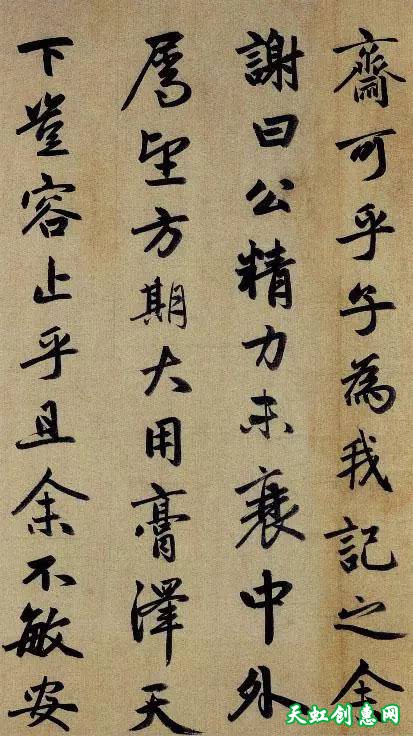 齋可乎子為我記之余
謝曰公精力未衰中外
屬望方期大用膏澤天
下豈容止乎且余不敏安
天虹创惠网